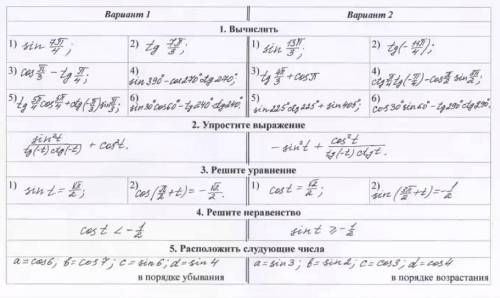 Вариант 1 Вариант 2
1. Вычислить
1) sin 7π/4; 2) tg 7π/3; 1) sin 13π/3; 2) tg(-11π/4);
3) cos π/3 - tg π/4; 4) sin390°-cos270°ctg240°; 3) tg 2π/3 + cosπ 4) ctg π/4 tg(-π/4)-cos π/2 sin 5π/2;
5) tg 5π/4 cos 5π/4 + ctg(-π/3) sin π/3; 6) sin30°cos60°-tg240°ctg240°. 5) sin225°ctg225°+sin405°; 6) cos30°sin60°-tg290°ctg290°.
2. Упростите выражение
sin²t/(tg(-t)ctg(-t)) + cos²t. -sin²t + cos²t/(tg(-t)ctgt.
3. Решите уравнение
1) sin t = √2/2; 2) cos(π/2+t) = -√2/2. 1) cost = √2/2; 2) sin(3π/2+t)=-1/2
4. Решите неравенство
cost < -1/2 sint ≥ -1/2
5. Расположить слудующие числа
a=cos6; b=cos7; c=sin6; d=sin4 a=sin3; b=sin2; c=cos3; d=cos4
в порядке убывания в порядке возрастания